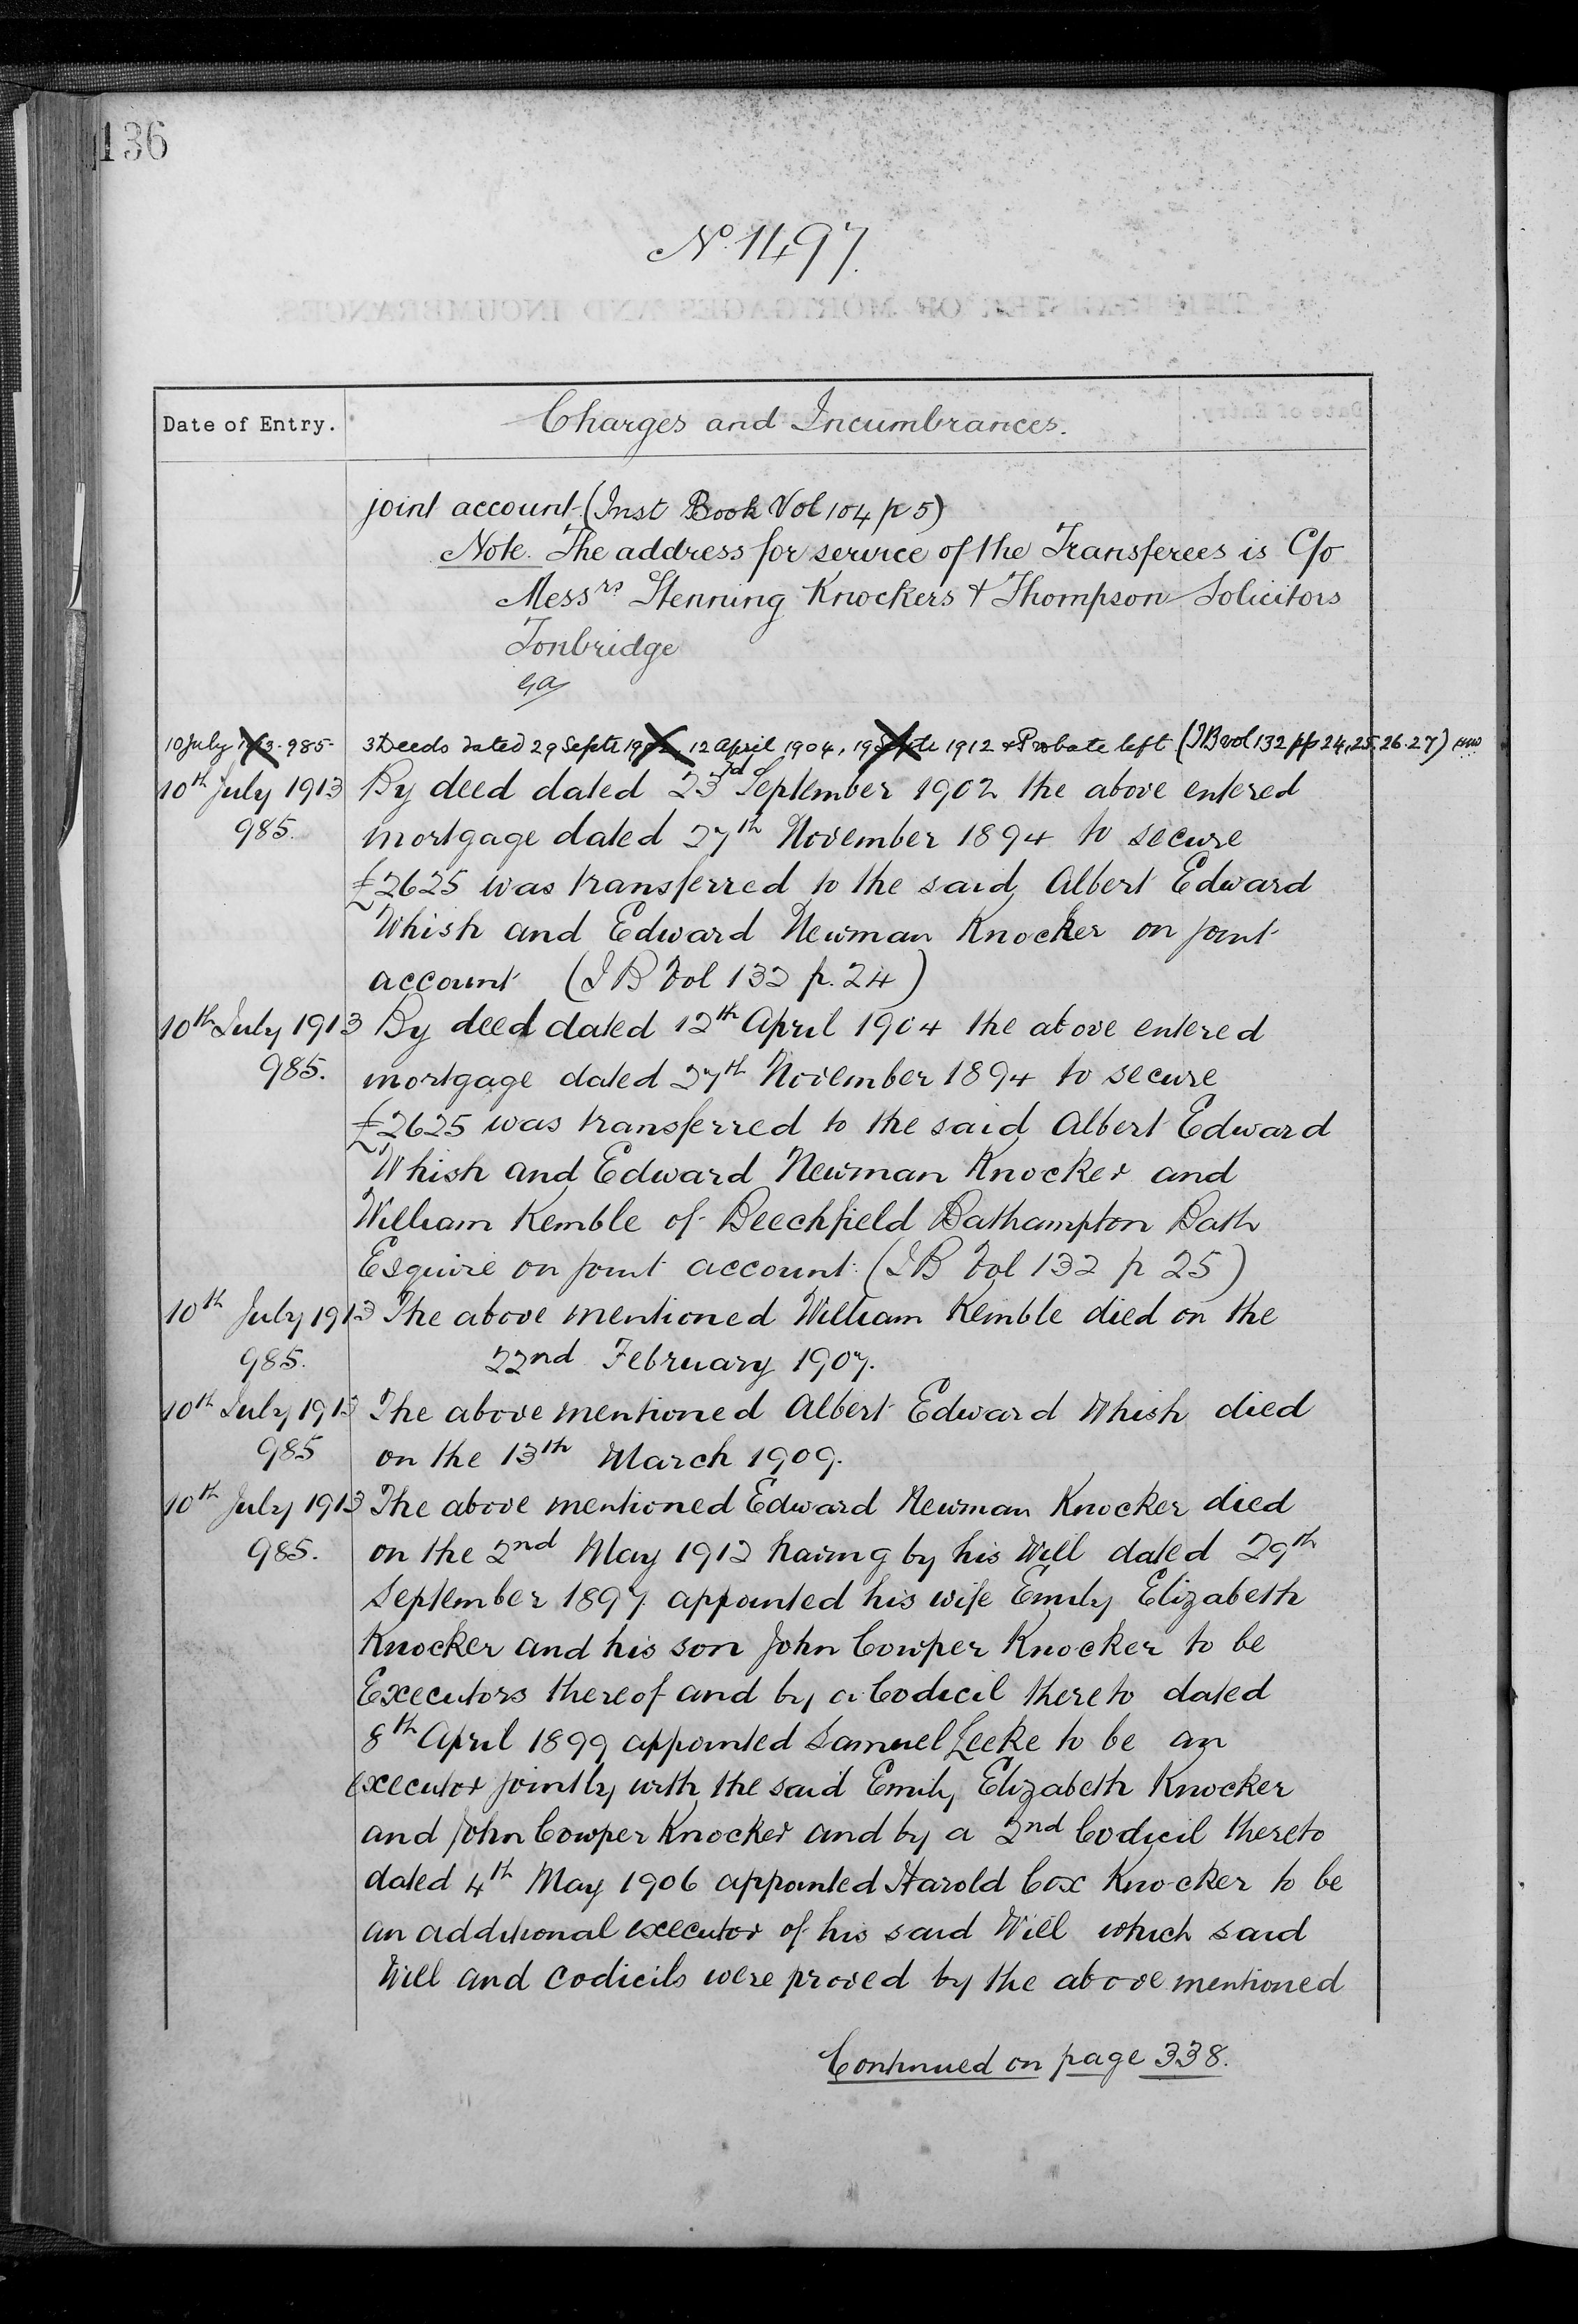 136
No. 1497.
Date of Entry. Charges and Incumbrances.
joint account (Inst Book Vol 104 p 5)
Note. The address for service of the Transferees is C/o
Messrs Stenning Knockers & Thompson Solicitors
Tonbridge
10 July 1913. 985. 3 Deeds dated 29 Septr 1902, 12 April 1904, 19 Septr 1912 & Probate left (IB vol 132 pp 24, 25. 26. 27)
10th July 1913 By deed dated 23rd September 1902 the above entered
985. mortgage dated 27th November 1894 to secure
£2625 was transferred to the said Albert Edward
Whish and Edward Newman Knocker on joint
account (IB Vol 132 p. 24)
10th July 1913 By deed dated 12th April 1904 the above entered
985. mortgage dated 27th November 1894 to secure
£2625 was transferred to the said Albert Edward
Whish and Edward Newman Knocker and
William Kemble of Beechfield Bathampton Bath
Esquire on joint account. (IB Vol 132 p 25)
10th July 1913 The above mentioned William Kemble died on the
985. 22nd February 1907.
10th July 1913 The above mentioned Albert Edward Whish died
985 on the 13th March 1909.
10th July 1913 The above mentioned Edward Newman Knocker died
985. on the 2nd May 1912 having by his Will dated 29th
September 1897 appointed his wife Emily Elizabeth
Knocker and his son John Cowper Knocker to be
Executors thereof and by a Codicil thereto dated
8th April 1899 appointed Samuel Leeke to be an
executor jointly with the said Emily Elizabeth Knocker
and John Cowper Knocker and by a 2nd Codicil thereto
dated 4th May 1906 appointed Harold Cox Knocker to be
an additional executor of his said Will which said
Will and codicils were proved by the above mentioned
Continued on page 338.